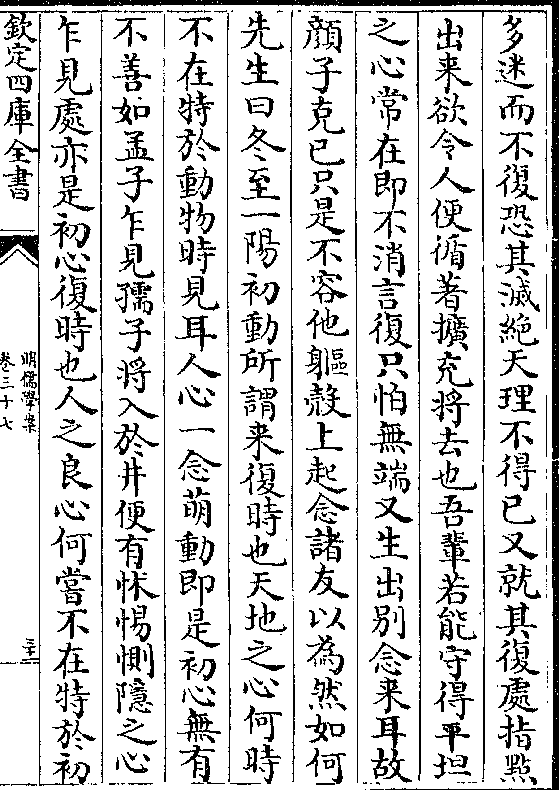 多迷而不復恐其滅絶天理不得已又就其復處指點
出来欲令人便循著擴充將去也吾輩若能守得平坦
之心常在即不消言復只怕無端又生出别念来耳故
顔子克已只是不容他軀殼上起念諸友以為然如何
先生曰冬至一陽初動所謂来復時也天地之心何時
不在特於動物時見耳人心一念萌動即是初心無有
不善如孟子乍見孺子將入於井便有怵惕惻隱之心
乍見處亦是初心復時也人之良心何嘗不在特於初
欽定四庫全書
明儒學案
卷三十七